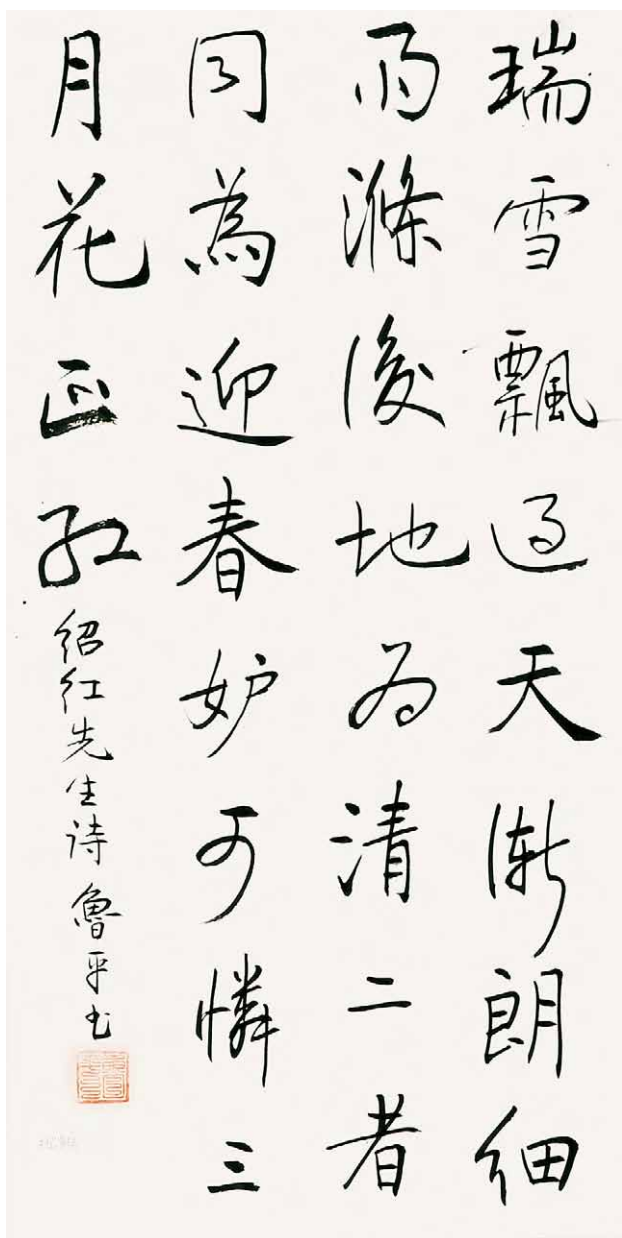 瑞雪飄過天漸朗細
雨滌後地為清二者
同為迎春妒可憐三
月花正紅
绍红先生诗 魯平书